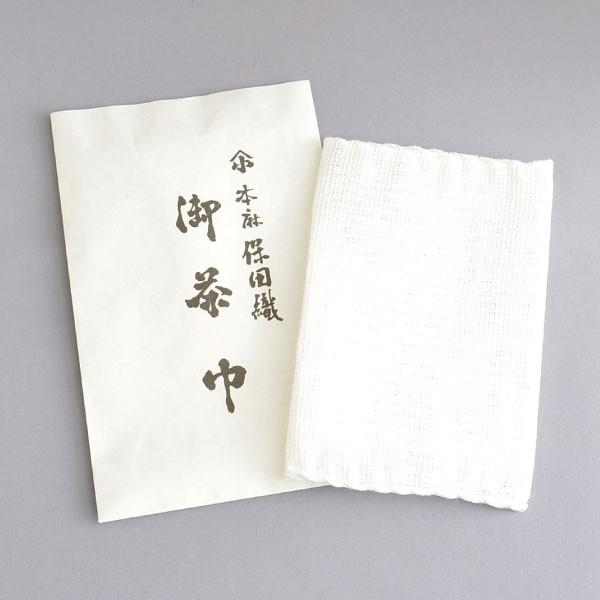 本麻保田織
御茶巾